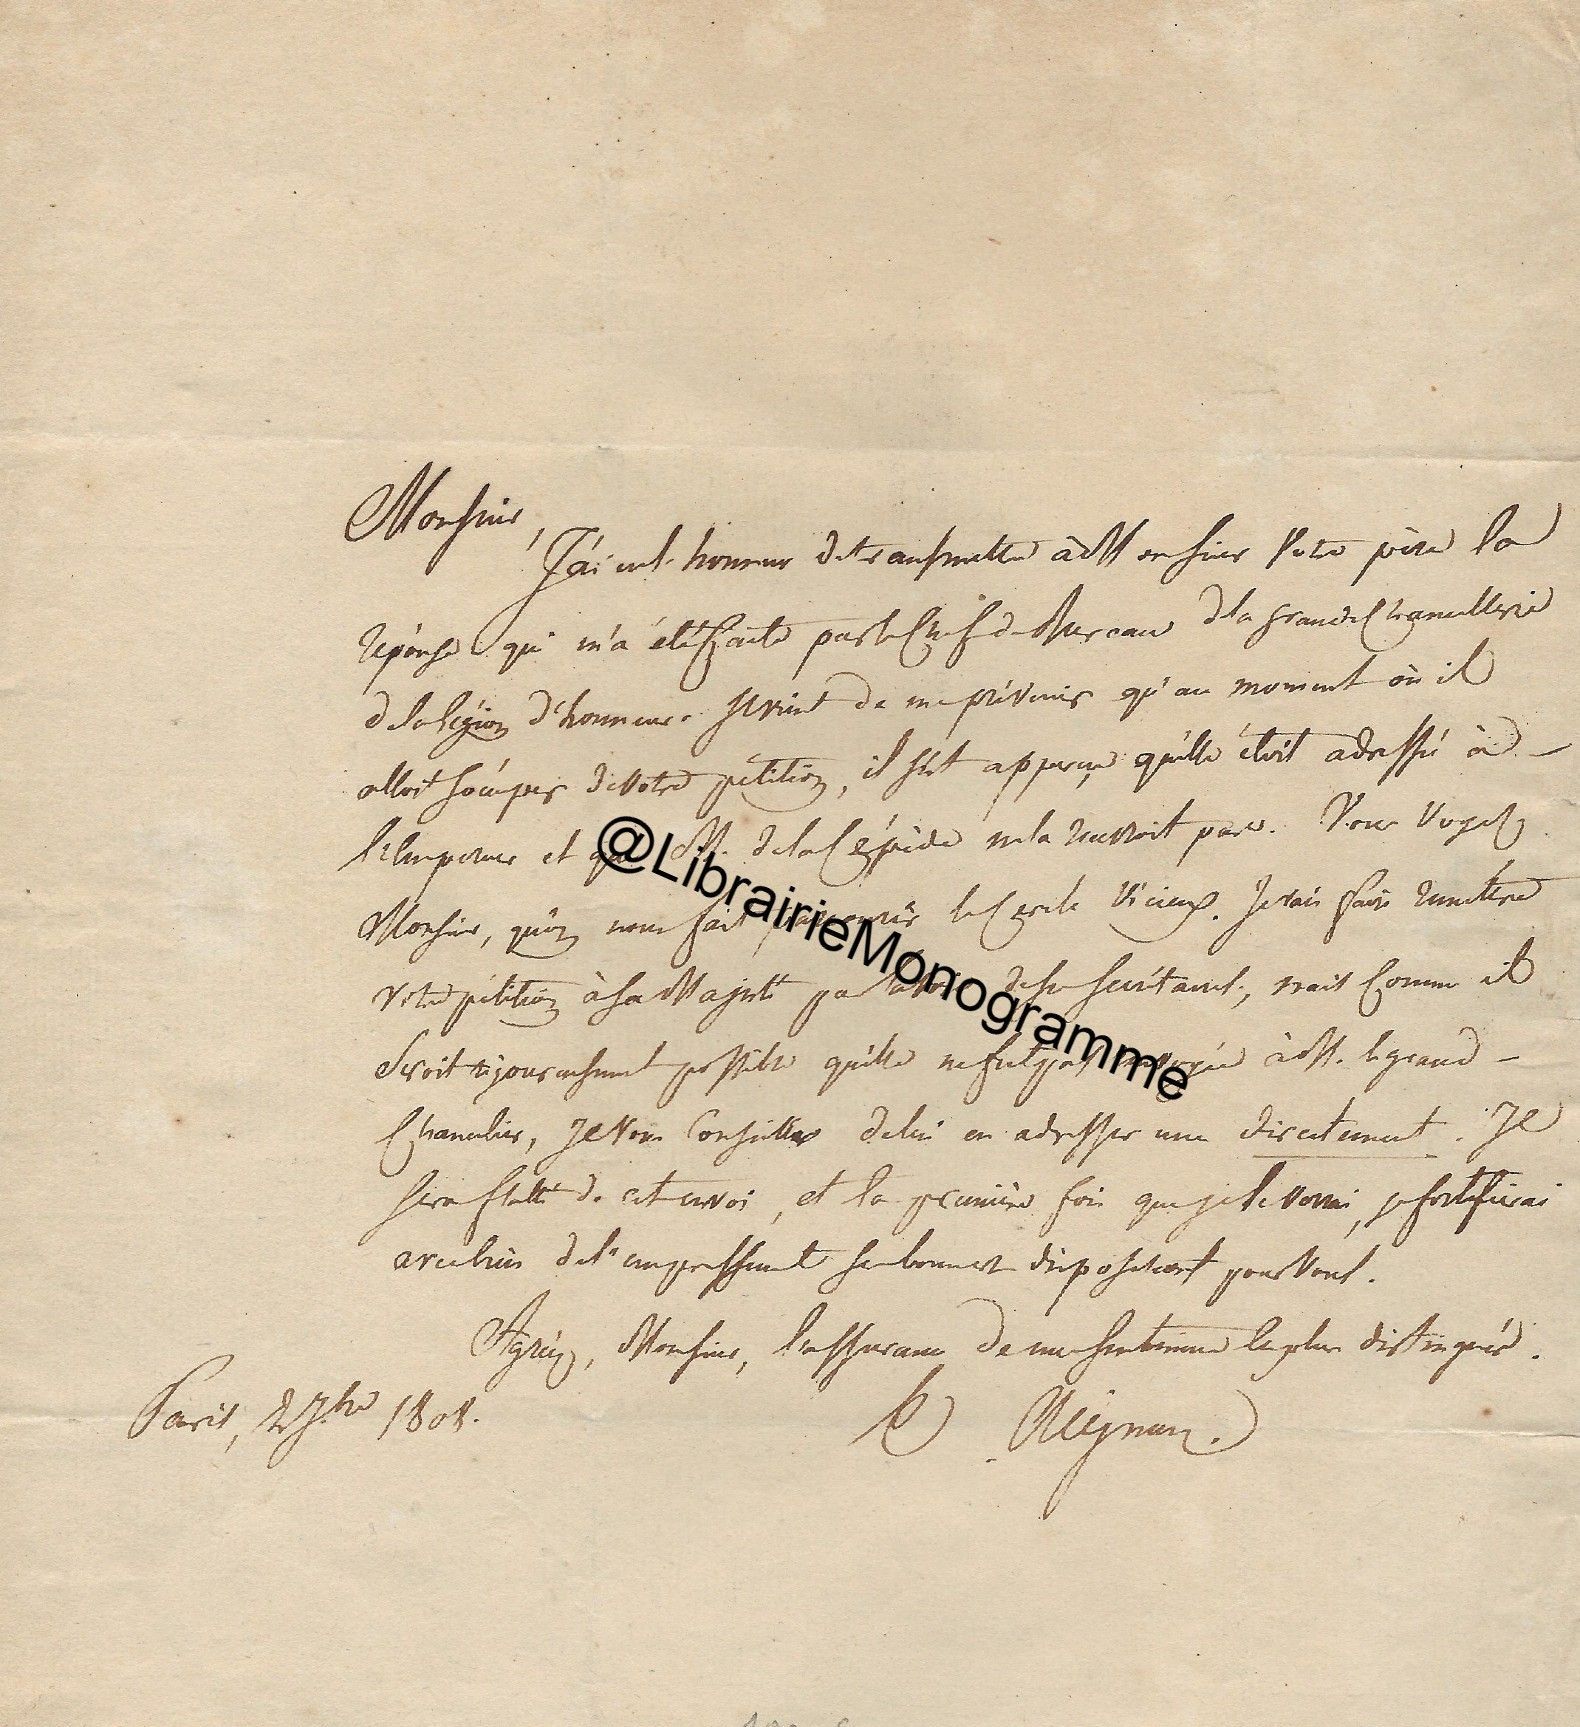 Monsieur,
J'ai eu l'honneur de transmettre à Monsieur Votre père la
réponse qui m'a été faite par le Chef de Bureau de la grande Chancellerie
de la légion d'honneur. Il vient de me prévenir qu'au moment où il
alloit s'occuper de votre pétition, il s'est apperçu qu'elle étoit adressée à
l'Empereur et que M. de la Cépède ne la recevroit pas. Vous voyez
Monsieur, qu'on nous fait parcourir le Cercle Vicieux. Je vais faire remettre
votre pétition à Sa Majesté par la voie de ses secrétaires, mais comme il
seroit rigoureusement possible qu'elle ne fut pas renvoyée à M. le grand
Chancelier, Je vous Conseille de lui en adresser une directement. Je
serai flatté de cet envoi, et la première fois que je le verrai, je fortifierai
avec bien de l'empressement ses bonnes dispositions pour Vous.
Agréez, Monsieur, l'assurance de mes sentimens les plus distingués.
Paris, 2 7.bre 1808.
@LibrairieMonogramme